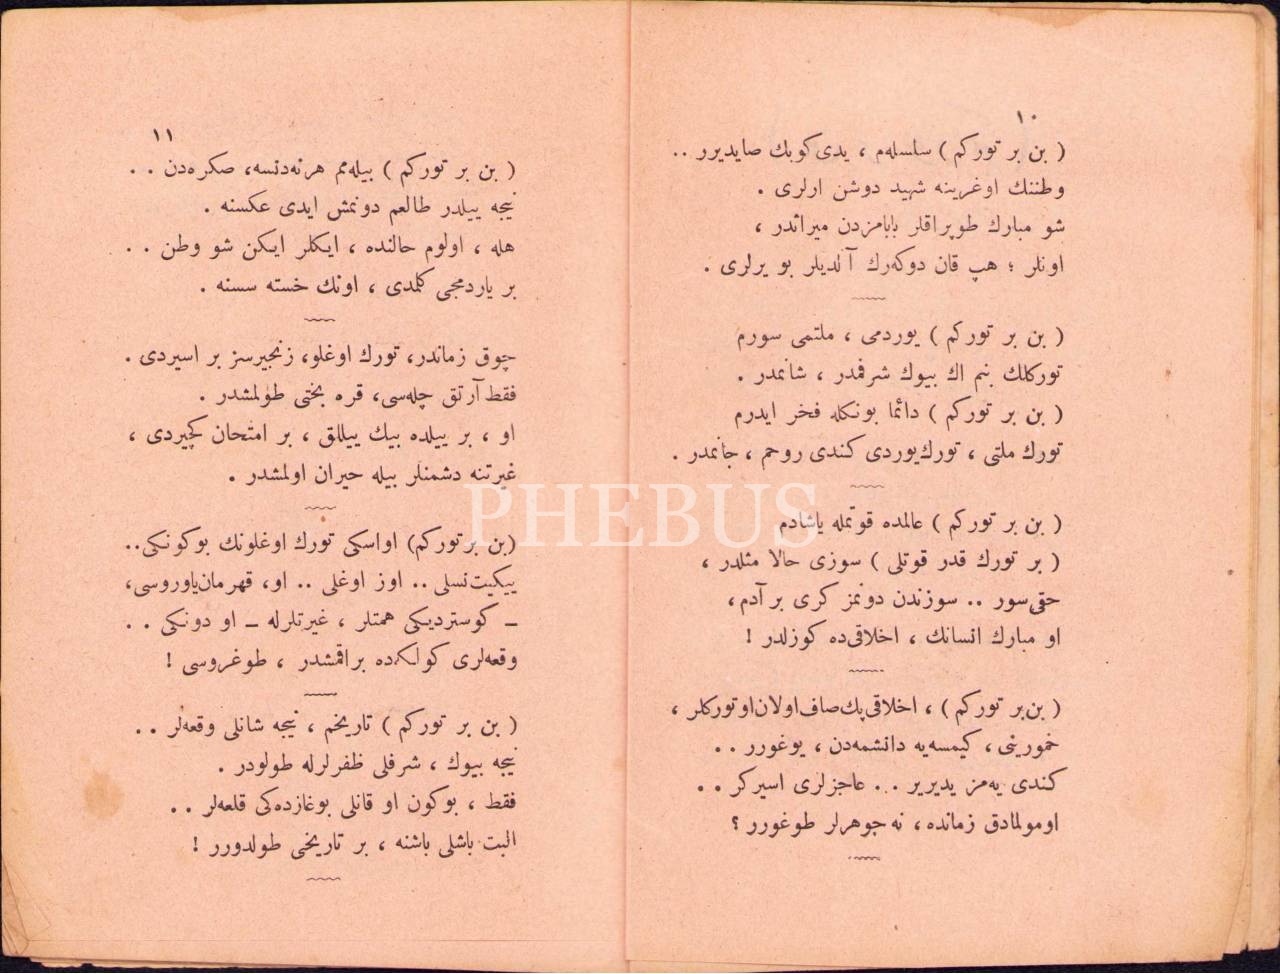 ١٠
( بن بر توركم ) سلسلەم ، يدى كوبك صايديرر ..
وطننك اوغرينه شهيد دوشن ارلرى .
شو مبارك طوپراقلر بابامزدن ميراثدر ،
اونلر ؛ هپ قان دوكەرك آلديلر بو يرلرى .
( بن بر توركم ) يوردمى ، ملتمى سورم
توركلك بنم اك بيوك شرفمدر ، شانمدر .
( بن بر توركم ) دائما بونكله فخر ايدرم
تورك ملتى ، تورك يوردى كندى روحم ، جانمدر .
( بن بر توركم ) عالمده قوتمله ياشادم
( بر تورك قدر قوتلى ) سوزى حالا مثلدر ،
حقى سور .. سوزندن دونمز كرى بر آدم ،
او مبارك انسانك ، اخلاقى ده كوزلدر !
( بن بر توركم ) ، اخلاقى پك صاف اولان او توركلر ،
خمورينى ، كيمسه يه دانشمه دن ، يوغورر ..
كندى يه مز يديرير ... عاجزلرى اسيركر ..
اومولمادق زمانده ، نه جوهرلر طوغورر ؟
١١
( بن بر توركم ) بيله مم هر نه دنسه ، صكره دن ..
نيجه ييلدر طالعم دونمش ايدى عكسنه .
هله ، اولوم حالنده ، ايكلر ايكن شو وطن ..
بر ياردمجى كلمدى ، اونك خسته سسنه .
چوق زماندر ، تورك اوغلو ، زنجيرسز بر اسيردى .
فقط آرتق چله سى ، قره بختى طولمشدر .
او ، بر ييلده بيك ييللق ، بر امتحان كچيردى ،
غيرتنه دشمنلر بيله حيران اولمشدر .
(بن بر توركم) او اسكى تورك اوغلونك بوكونكى ..
ييكيت نسلى .. اوز اوغلى .. او ، قهرمان ياوروسى ،
ـ كوستردیكى همتلر ، غيرتلرله ـ او دونكى ..
وقعه لرى كولكه ده براقمشدر ، طوغروسى !
( بن بر توركم ) تاريخم ، نيجه شانلى وقعه لر ..
نيجه بيوك ، شرفلى ظفرلرله طولودر .
فقط ، بوكون او قانلى بوغازده كى قلعه لر ..
البت باشلى باشنه ، بر تاريخى طولدورر !
PHEBUS